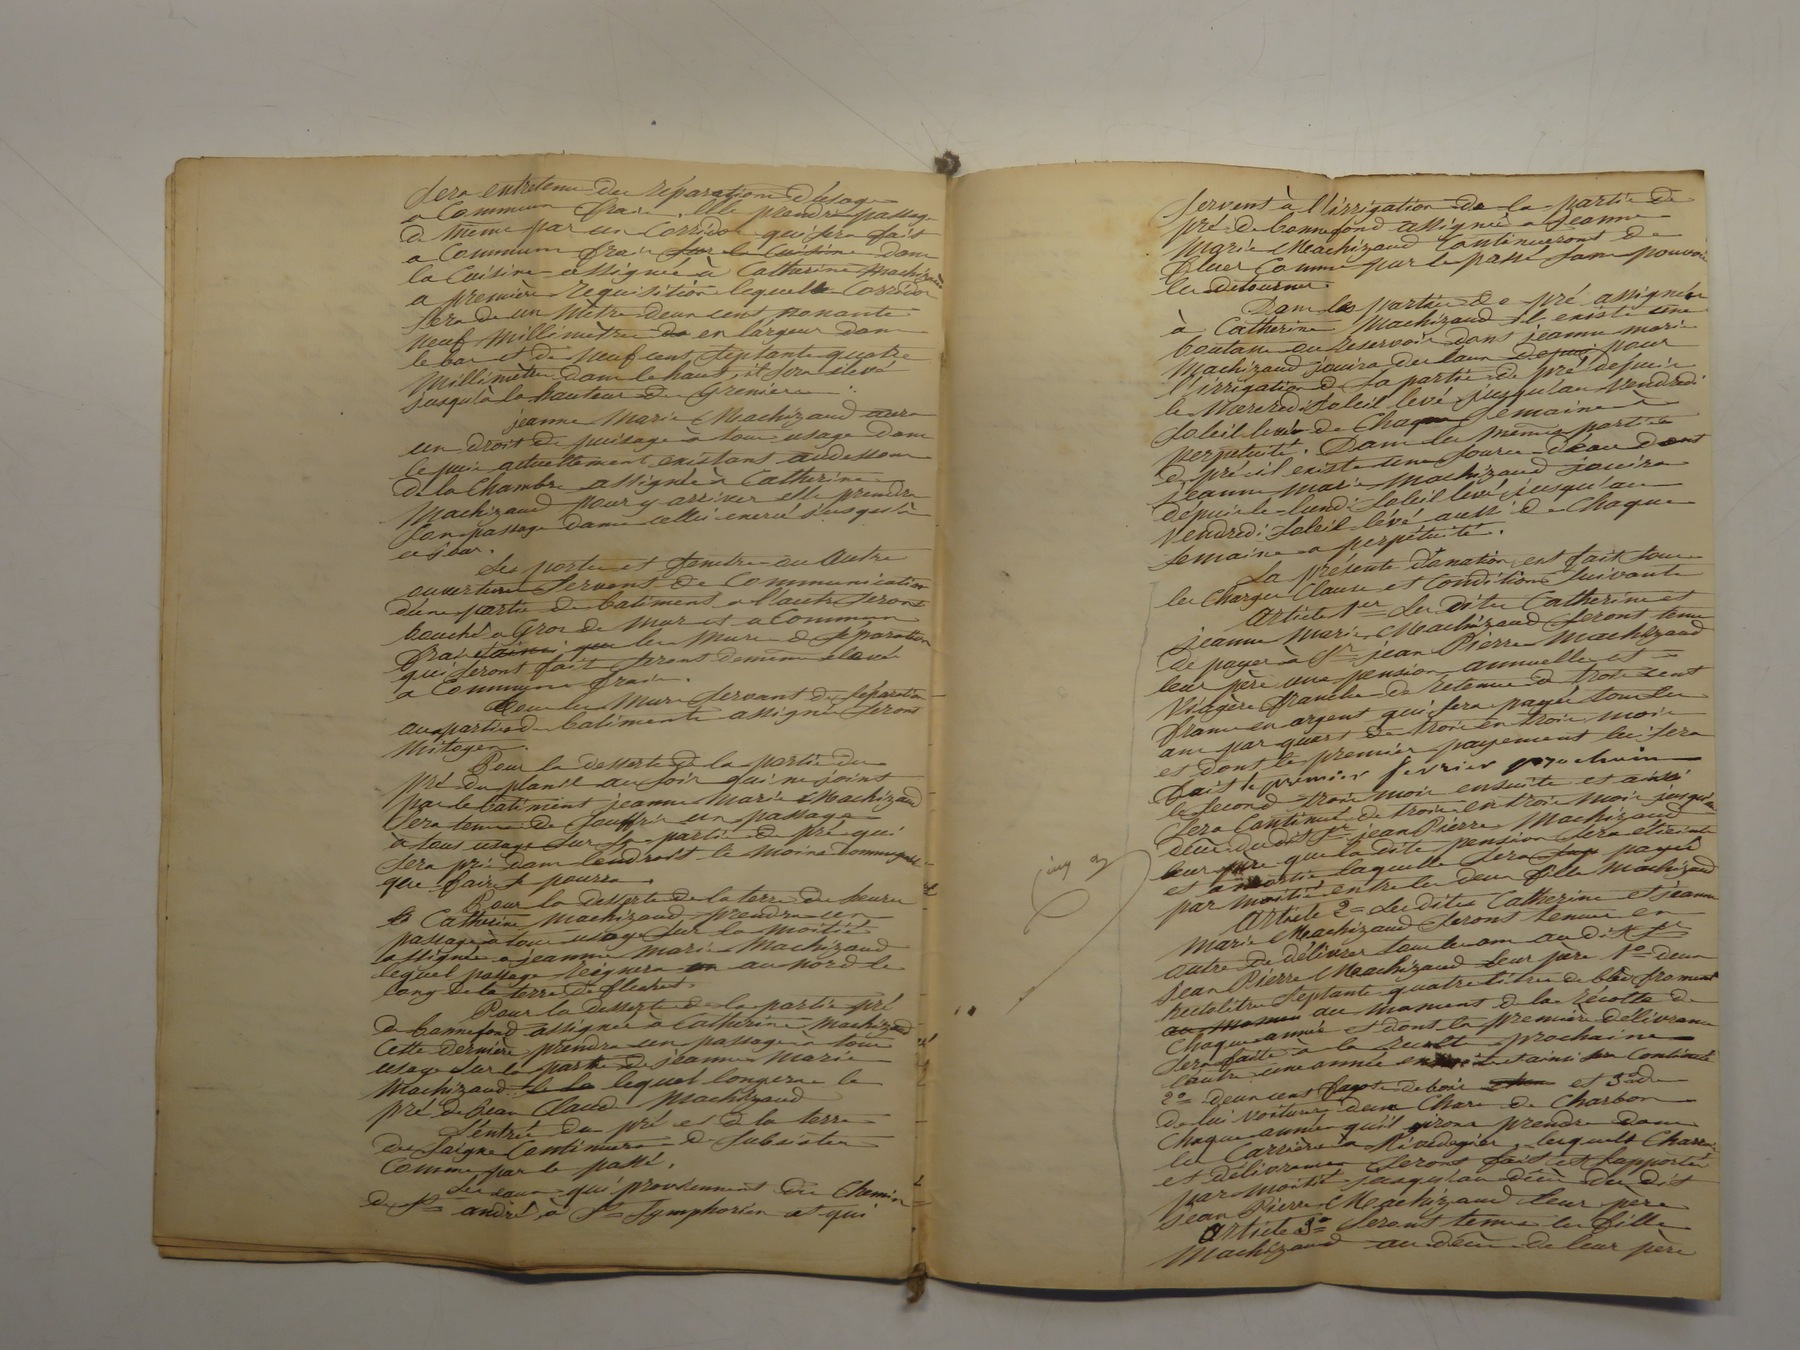 Sera entretenu de réparations d'usage
a Commun frais. Elle prendra passage
de même par un Corridor qui sera fait
a Commun frais sur la Cuisine dans
la Cuisine assignée à Catherine Machizaud
a première requisition lequel Corridor
sera de un mètre deux cent nonante
neuf millimètres de en largeur dans
le bas et de neuf cent septante quatre
millimètres dans le haut, il sera élevé
jusqu'à la hauteur du Grenier.
jeanne Marie Machizaud aura
un droit de puisage à tous usage dans
le puis actuellement existant au dessous
de la Chambre assignée à Catherine
Machizaud pour y arriver elle prendra
son passage dans celui énoncé jusques à
ce jour.
Les portes et fenetre ou autre
ouverture servant de Communication
d'une partie de batiment a l'autre seront
bouché a Gros de Mur et a Commun
frais les Murs de séparation
qui seront fait seront de même élevé
a Commun frais.
Tous les Murs servant de séparation
aux parties de batiments assigné seront
Mitoyen.
Pour la desserte de la partie du
pré du planil au soir qui ne joint
pas le batiment jeanne Marie Machizaud
sera tenue de souffrir un passage
à tous usage sur la partie de pré qui
sera pris dans l'endroit le moins dommageable
que faire se pourra.
Pour la desserte de la terre de
Catherine Machizaud prendra un
passage à tous usage sur la moitié
assignée a jeanne Marie Machizaud
lequel passage reignera au nord le
long de la terre de
Pour la desserte de la partie pré
de bonnefond assignée à Catherine Machizaud
Cette dernière prendra un passage a tous
usage sur la partie de jeanne Marie
Machizaud lequel longera le
pré de Jean Claude Machizaud
L'entrée du pré et de la terre
de Saigne Continuera de subsister
Comme par le passé.
Les eaux qui proviennent du Chemin
de St andré à St Symphorien et qui
servent à l'irrigation de la partie de
pré de bonnefond assignée a jeanne
Marie Machizaud Continueront de
fluer Comme par le passé sans pouvoir
les détourner.
Dans la partie de pré assignée
à Catherine Machizaud il existe une
boutasse ou réservoir dont jeanne marie
Machizaud jouira de l'eau pour
l'irrigation de sa partie de pré depuis
le Mercredi soleil levé jusqu'au Vendredi
soleil levé de Chaque semaine à
perpétuité. Dans la même partie
de pré il existe une source d'eau dont
jeanne marie Machizaud jouira
depuis le lundi soleil levé jusqu'au
Vendredi soleil lévé aussi de Chaque
semaine a perpétuité.
La présente donation est fait sous
les Charges Clause et Conditions suivante
Article 1er Les dites Catherine et
jeanne Marie Machizaud seront tenus
de payer à Sr jean Pierre Machizaud
leur père une pension annuelle et
Viagère franche de retenue de trois cent
francs en argent qui sera payée tous les
ans par quart de trois en trois mois
et dont le premier payement lui sera
fait le premier fevrier prochain
le second trois mois ensuite et ainsi
sera Continué de trois en trois mois jusqu'au
décès du dit Sr jean Pierre Machizaud
leur père que la dite pension sera éteinte
et amortie laquelle sera payée
par moitié entre les deux fille Machizaud
Article 2e Les dites Catherine et jeanne
Marie Machizaud seront tenue en
autre de délivrer tous les ans au dit Sr
Jean Pierre Machizaud leur père 1o deux
hectolitre septante quatre litres de blé froment
au moment au moment de la récolte de
Chaque année et dont la première délivrance
sera faite à la recolte prochaine
l'autre une année ensuite et ainsi Continué
2o deux cent fagots de bois et 3o de
de lui voiturer deux Chars de Charbon
Chaque année qu'il iront prendre dans
la Carrière a lesquels Charrois
et délivrances seront fait et supporté
par moitié jusqu'au décès du dit
Jean Pierre Machizaud leur père
Article 3e seront tenue les fille
Machizaud au décès de leur père